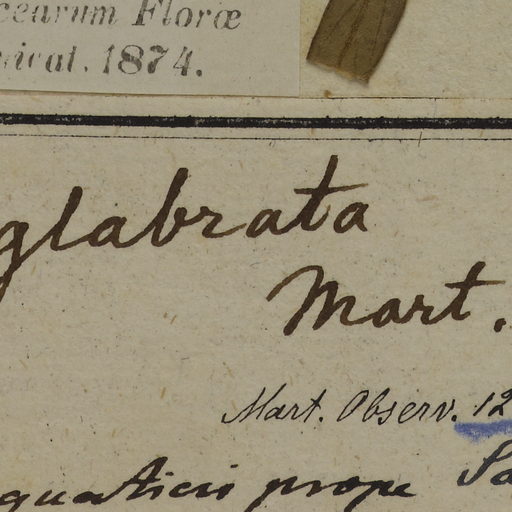 cearum Floræ
1874.
glabrata
Mart.
Mart. Observ. 12
quaticis prope Sa